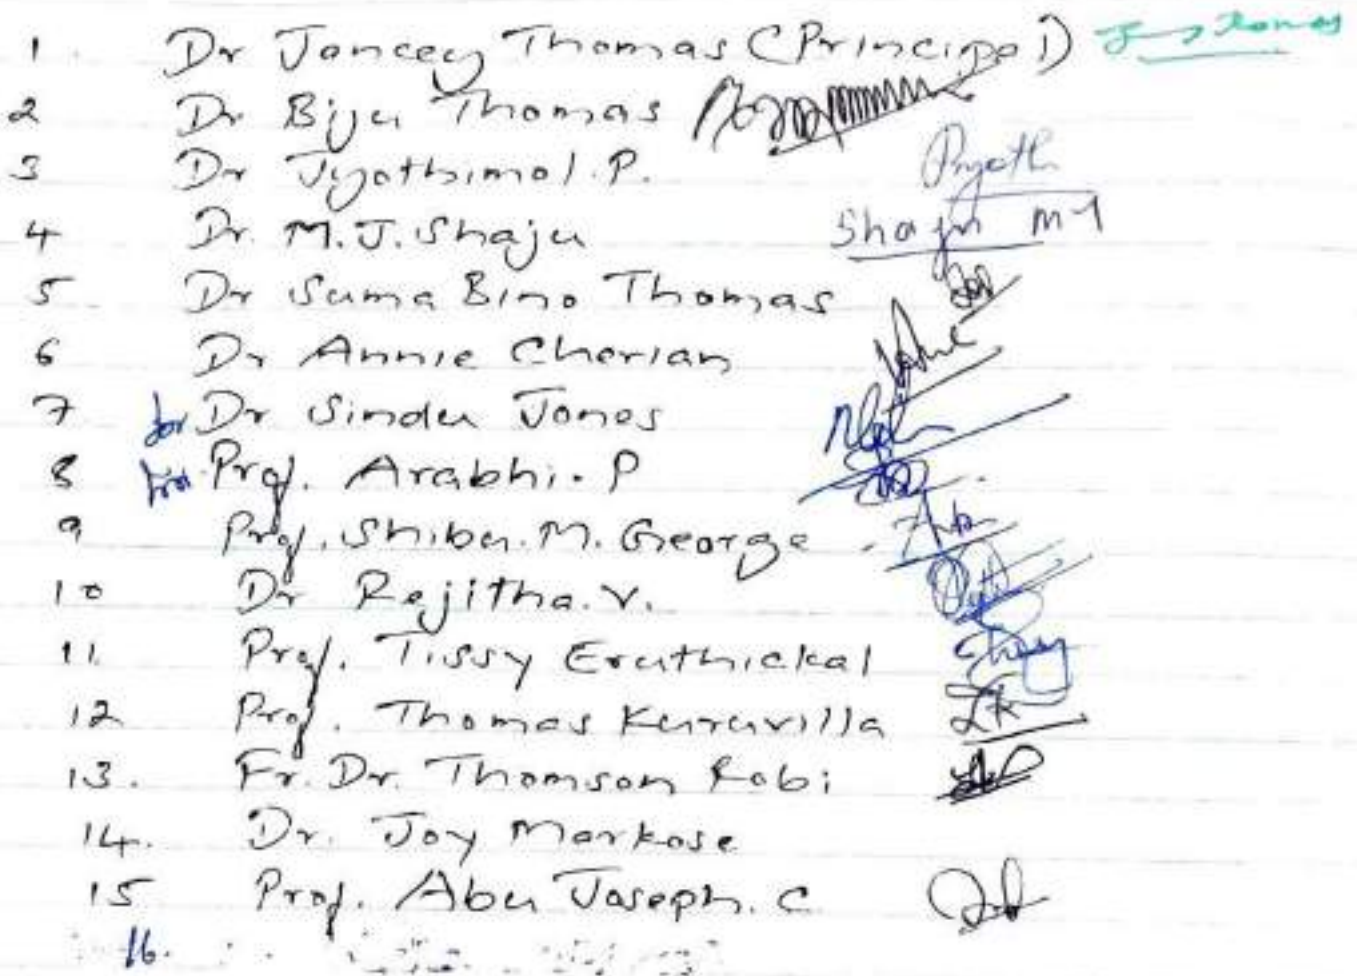 1. Dr Jancey Thomas (Principal)
2 Dr Biju Thomas
3 Dr Jyothimol. P.
4 Dr. M.J. Shaju Shaju M J
5 Dr Suma Bino Thomas
6 Dr Annie Cherian
7 Dr. Sindu Jones
8 Prof. Arabhi. P
9 Prof. Shibu. M. George
10 Dr Rejitha. V.
11. Prof. Tissy Eruthickal
12 Prof. Thomas Kuruvilla
13. Fr. Dr. Thomson Robi
14. Dr. Joy Markose
15 Prof. Abu Joseph. C
16.